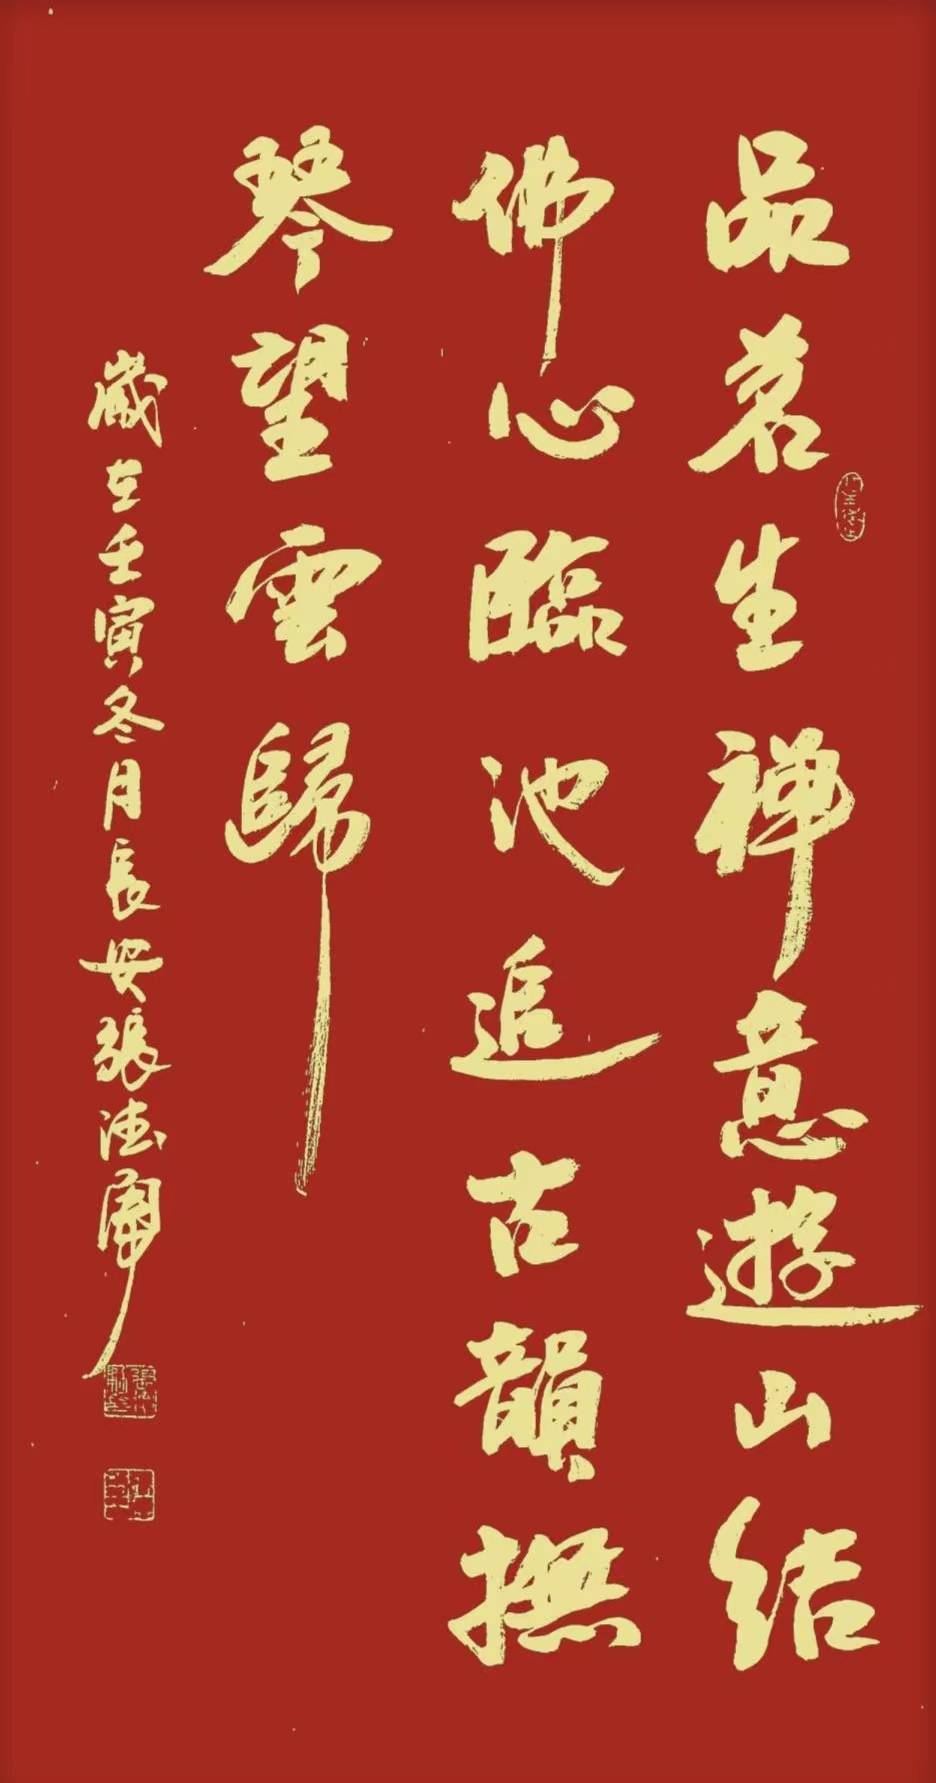 品茗生禅意遊山结
佛心臨池追古韻撫
琴望雲歸
歲在壬寅冬月長安張德